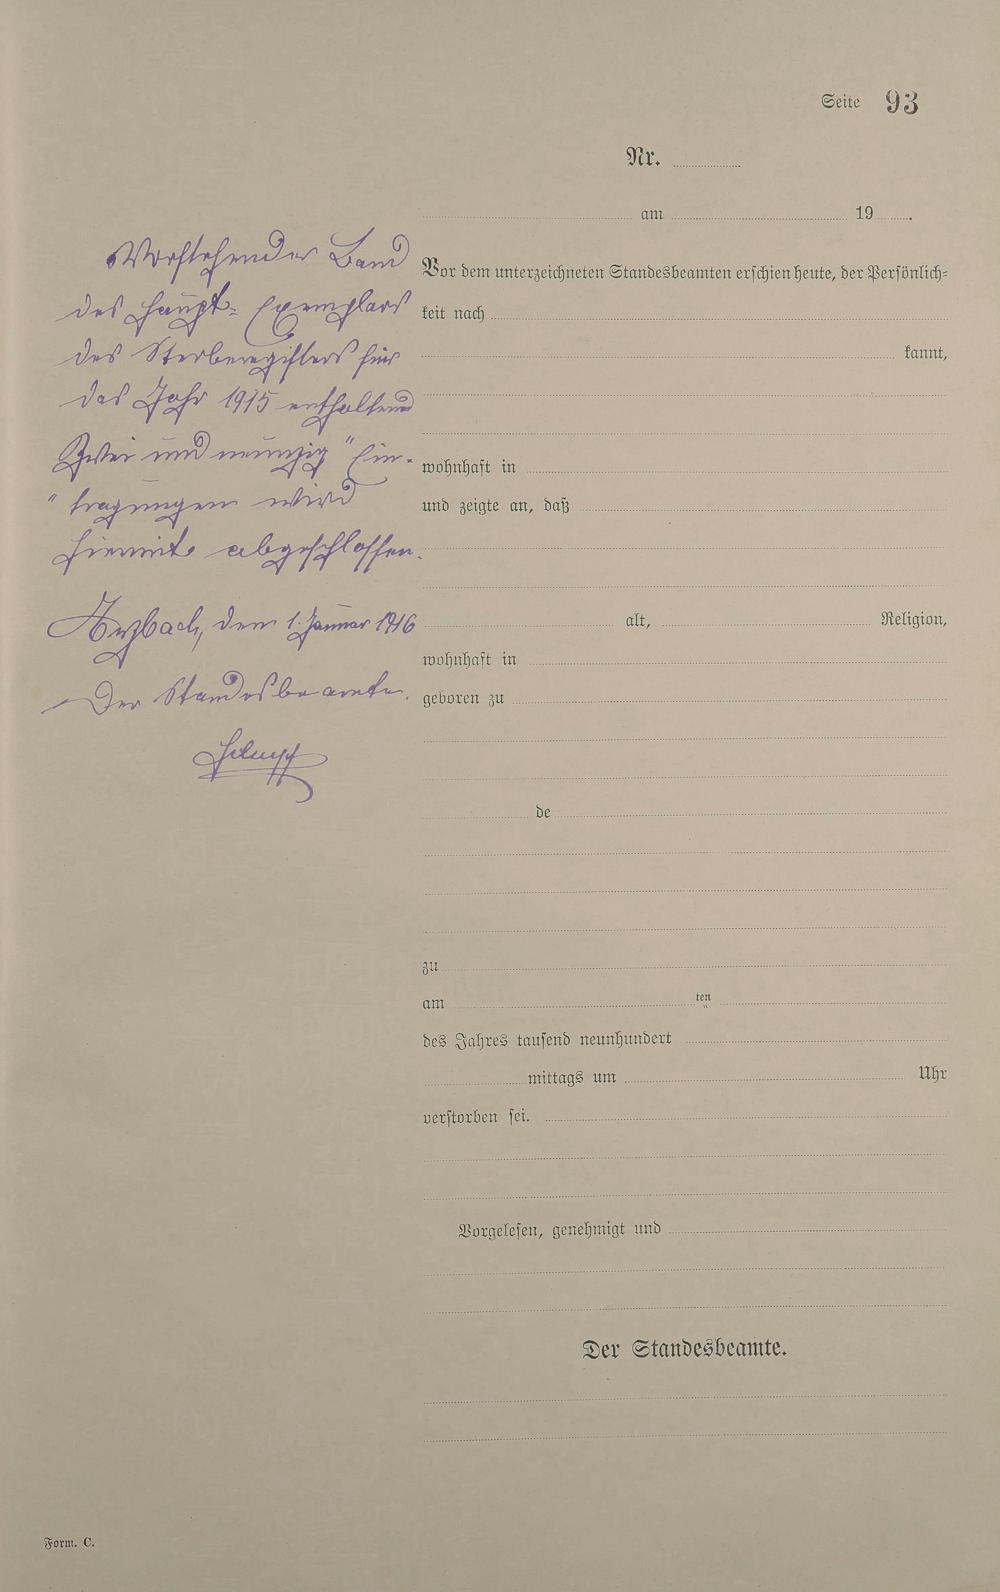 Seite 93
Nr.
am 19 .
Vorstehender Band
des Haupt-Exemplars
des Sterberegisters für
das Jahr 1915 enthaltend
Zwei und neunzig "Ein-
"tragungen wird
hiermit abgeschlossen.
Arzbach, den 1. Januar 1916
Der Standesbeamte.
Vor dem unterzeichneten Standesbeamten erschien heute, der Persönlich-
keit nach
kannt,
wohnhaft in
und zeigte an, daß
alt, Religion,
wohnhaft in
geboren zu
de
zu
am ten
des Jahres tausend neunhundert
mittags um Uhr
verstorben sei.
Vorgelesen, genehmigt und
Der Standesbeamte.
Form. C.